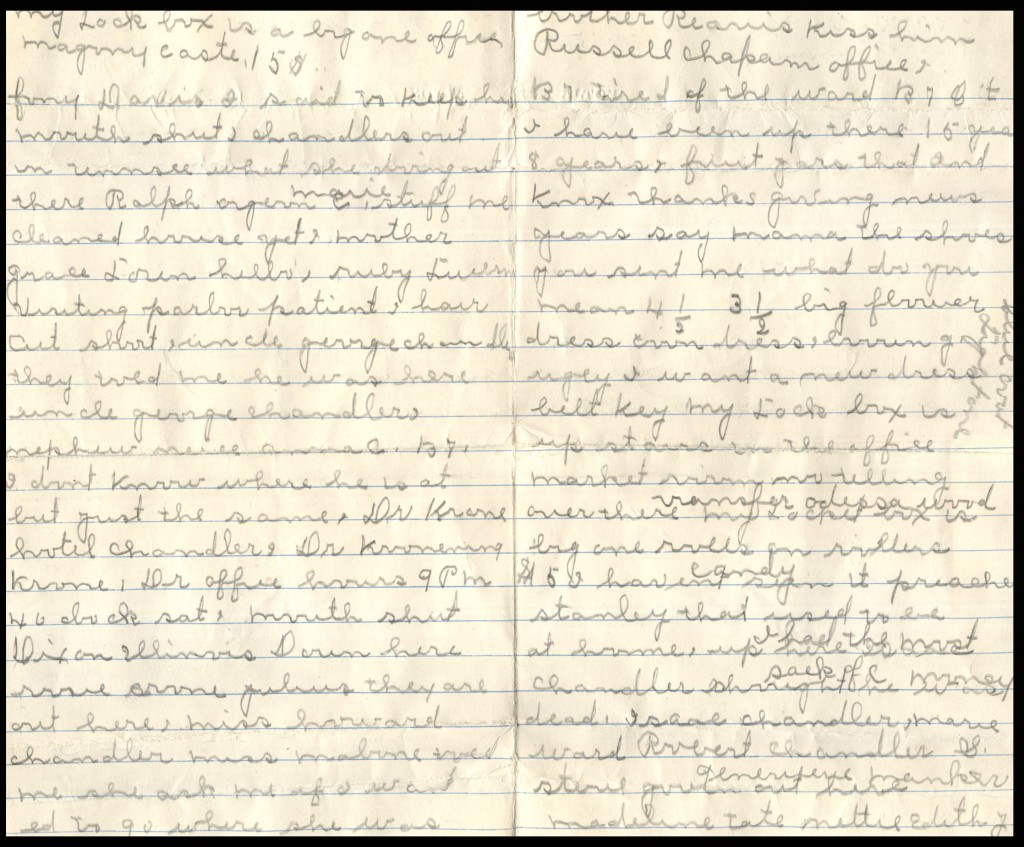 my Lock box is a big one office
magrny caste, 15¢
fony Davis I said to keep his
mouth shut, chandlers out
in see what she bring out
there Ralph marie stuff me
cleaned house yet, mother
grace Lorin hello, ruby
Visiting parlor patient, hair
cut short, uncle george chandler
they toed me he was here
uncle george chandler,
nephew neice anna C. B7,
I dont Know where he is at
but just the same, Dr Krone
hotel chandler, Dr Kronening
Krone, Dr office hours 9 Pm
4 o clock sat, mouth shut
Dixon Illinois Down here
orone julius they are
out here, miss howard
chandler miss malone toed
me she ask me if I want
ed to go where she was
brother Reavis Kiss him
Russell chapam office,
B7 tired of the ward B7 & it
I have been up there 15 yea
8 years, fruit jars that and
Knox thanks giving news
years say mama the shoes
you sent me what do you
mean 4 1/2 3 1/2 big flower
dress dress, brown
ugly I want a new dress
belt Key my Lock box is
up stairs in the office
market room no telling
transfer odessa wood
over there my Locke box is
big one rolls on rollers
candy
$15 I havent seen it preache
stanley that used to be
at home, up here
I had the most
sack of money
chandler he was
dead, isaac chandler, marie
ward Robert chandler S.
genevieve manker
out here
madeline tate nettie edith